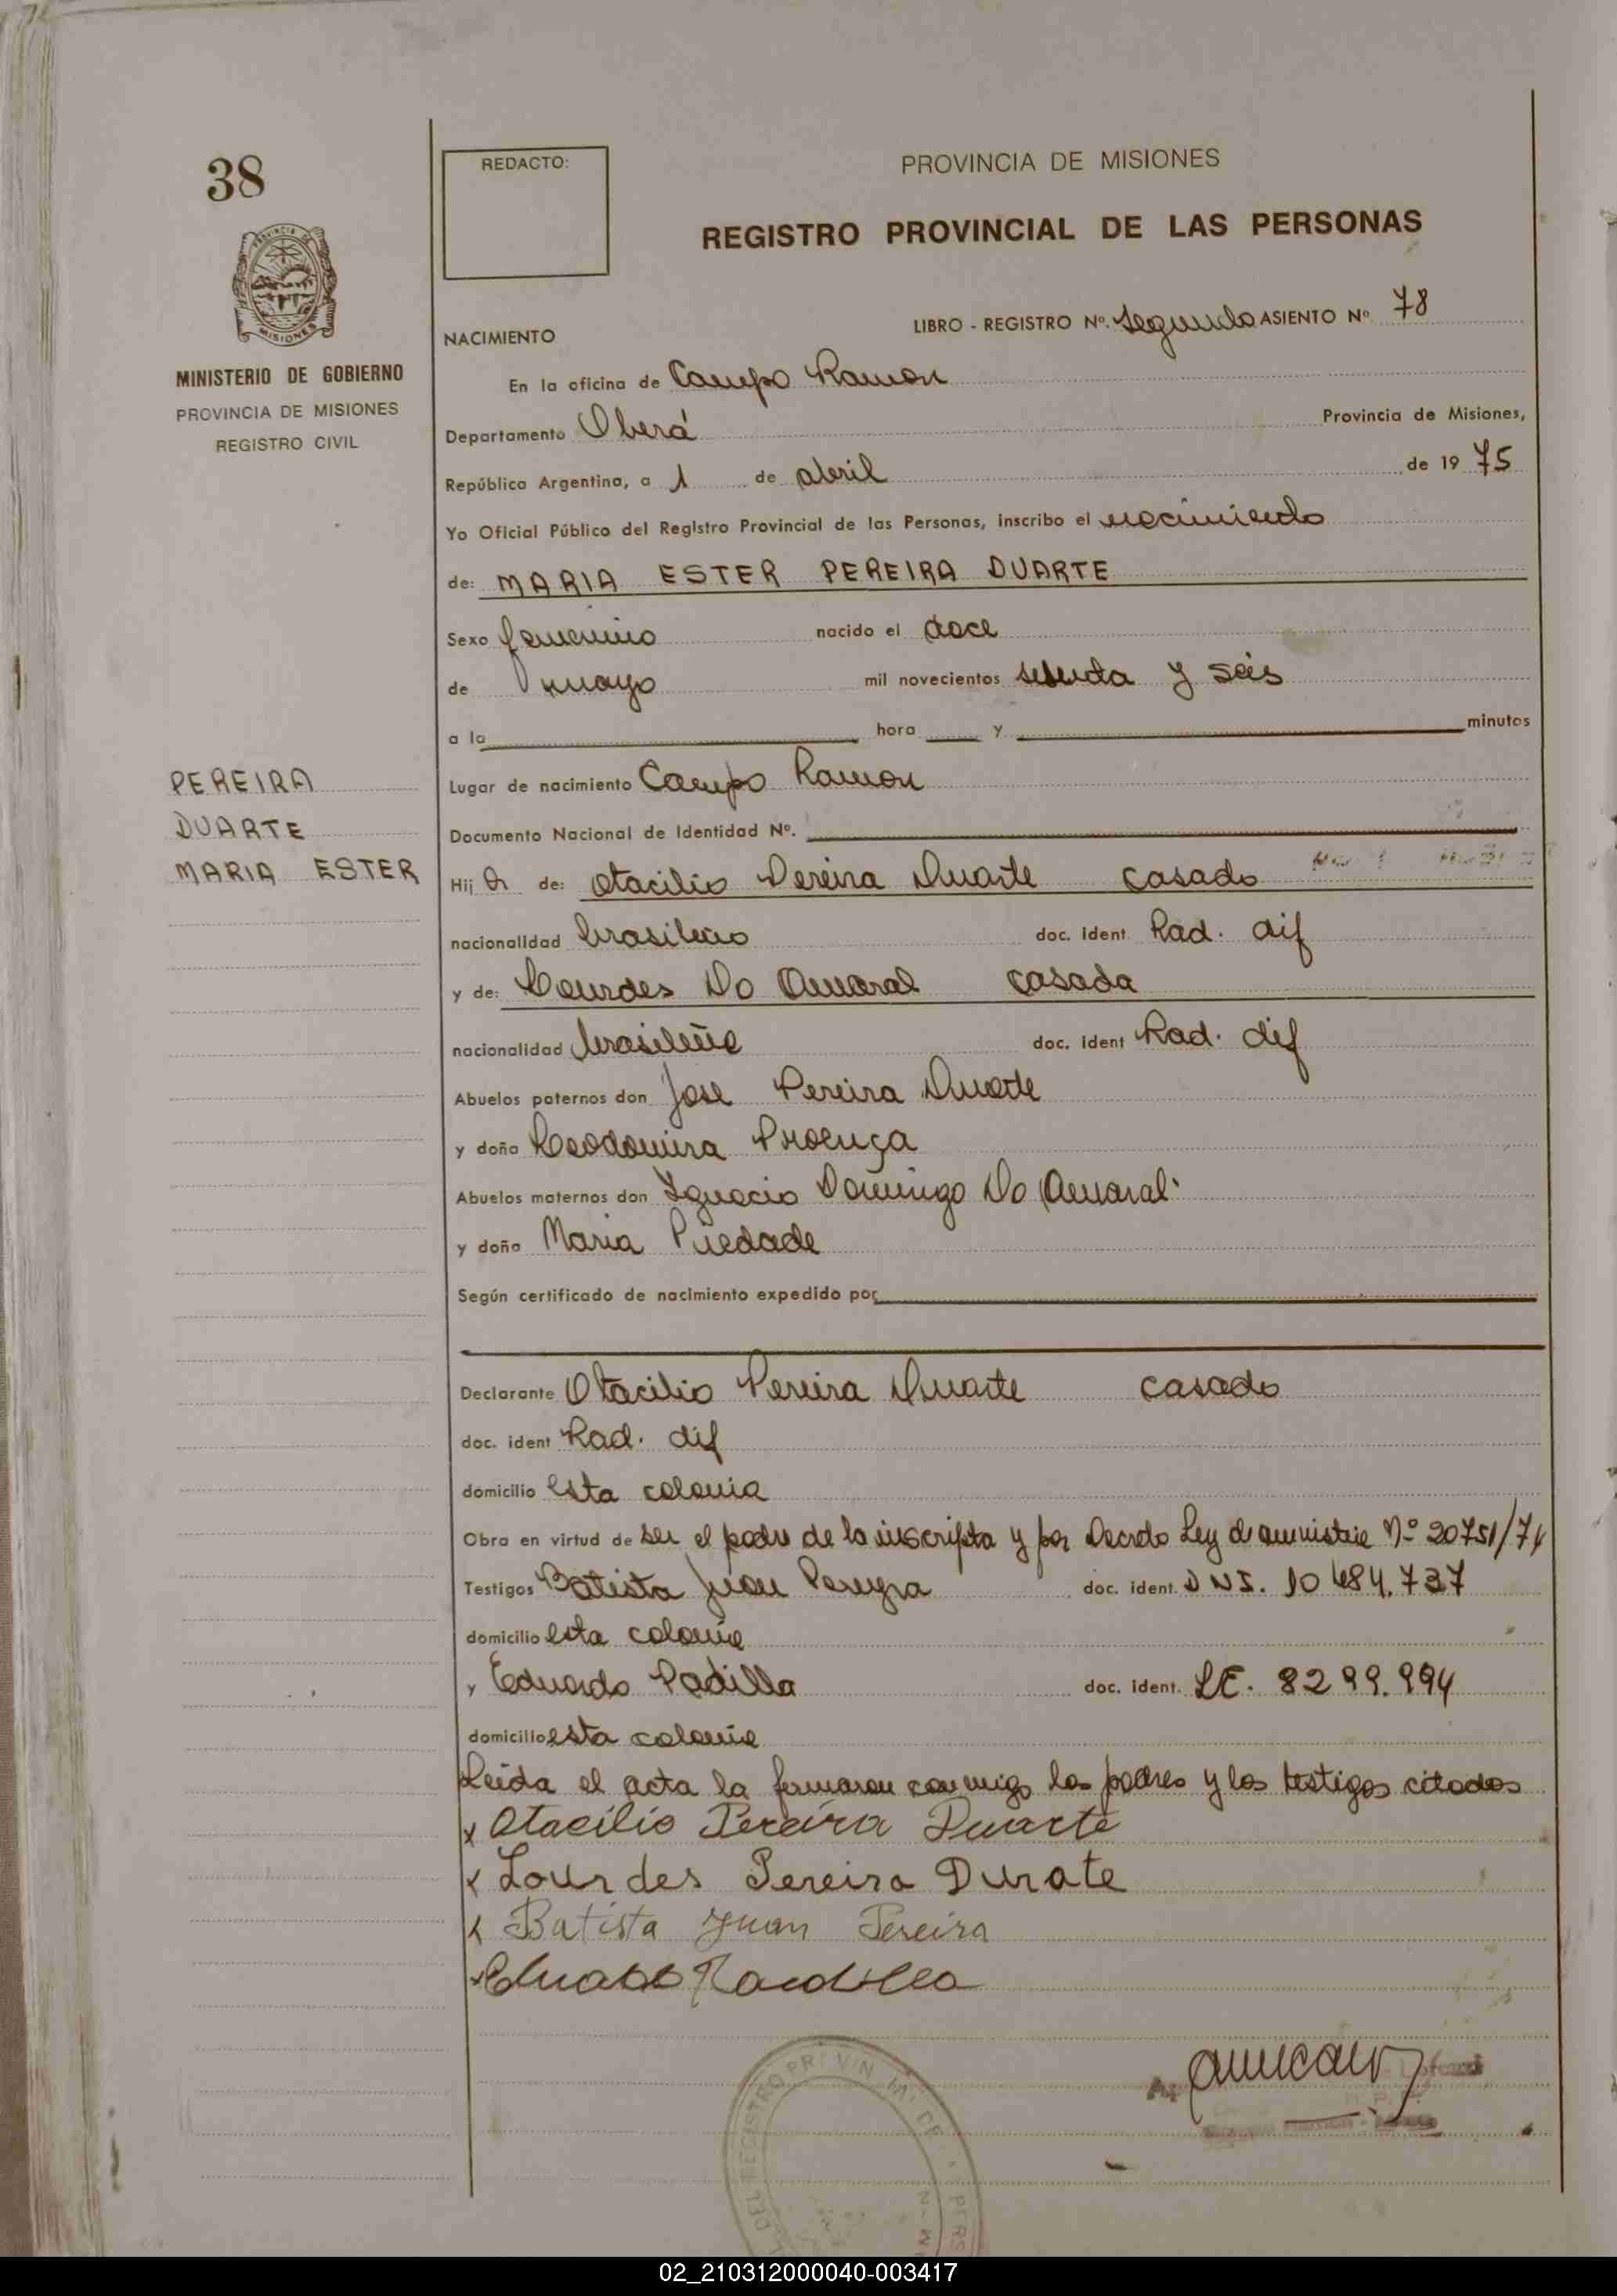 38
REDACTO:
PROVINCIA DE MISIONES
REGISTRO PROVINCIAL DE LAS PERSONAS
MISIONES
MINISTERIO DE GOBIERNO
PROVINCIA DE MISIONES
REGISTRO CIVIL
NACIMIENTO
LIBRO - REGISTRO Nº. Segundo ASIENTO Nº 78
En la oficina de Campo Ramon
Departamento Oberá Provincia de Misiones,
República Argentina, a 1 de abril de 19 75
Yo Oficial Público del Registro Provincial de las Personas, inscribo el nacimiento
de: MARIA ESTER PEREIRA DUARTE
Sexo femenino nacido el doce
de mayo mil novecientos sesenta y seis
a la hora y minutos
PEREIRA
DUARTE
MARIA ESTER
Lugar de nacimiento Campo Ramon
Documento Nacional de Identidad Nº.
Hij a de: Otacilio Pereira Duarte casado
nacionalidad brasileño doc. ident Rad. dif
y de: Lourdes Do Amaral casada
nacionalidad brasileña doc. ident Rad. dif
Abuelos paternos don Jose Pereira Duarte
y doña Leodomira Proença
Abuelos maternos don Ignacio Domingo Do Amaral
y doña Maria Piedade
Según certificado de nacimiento expedido por
Declarante Otacilio Pereira Duarte casado
doc. ident Rad. dif
domicilio esta colonia
Obra en virtud de ser el padre de la inscripta y por Decreto Ley de amnistia Nº 20751/74
Testigos Batista Juan Pereyra doc. ident. DNI. 10484.737
domicilio esta colonia
y Eduardo Padilla doc. ident. LE. 8299.994
domicilio esta colonia
Leida el acta la firmaron conmigo los padres y los testigos citados
x Otacilio Pereira Duarte
x Lourdes Pereira Durate
x Batista Juan Pereira
x Eduardo Padilla
02_210312000040-003417